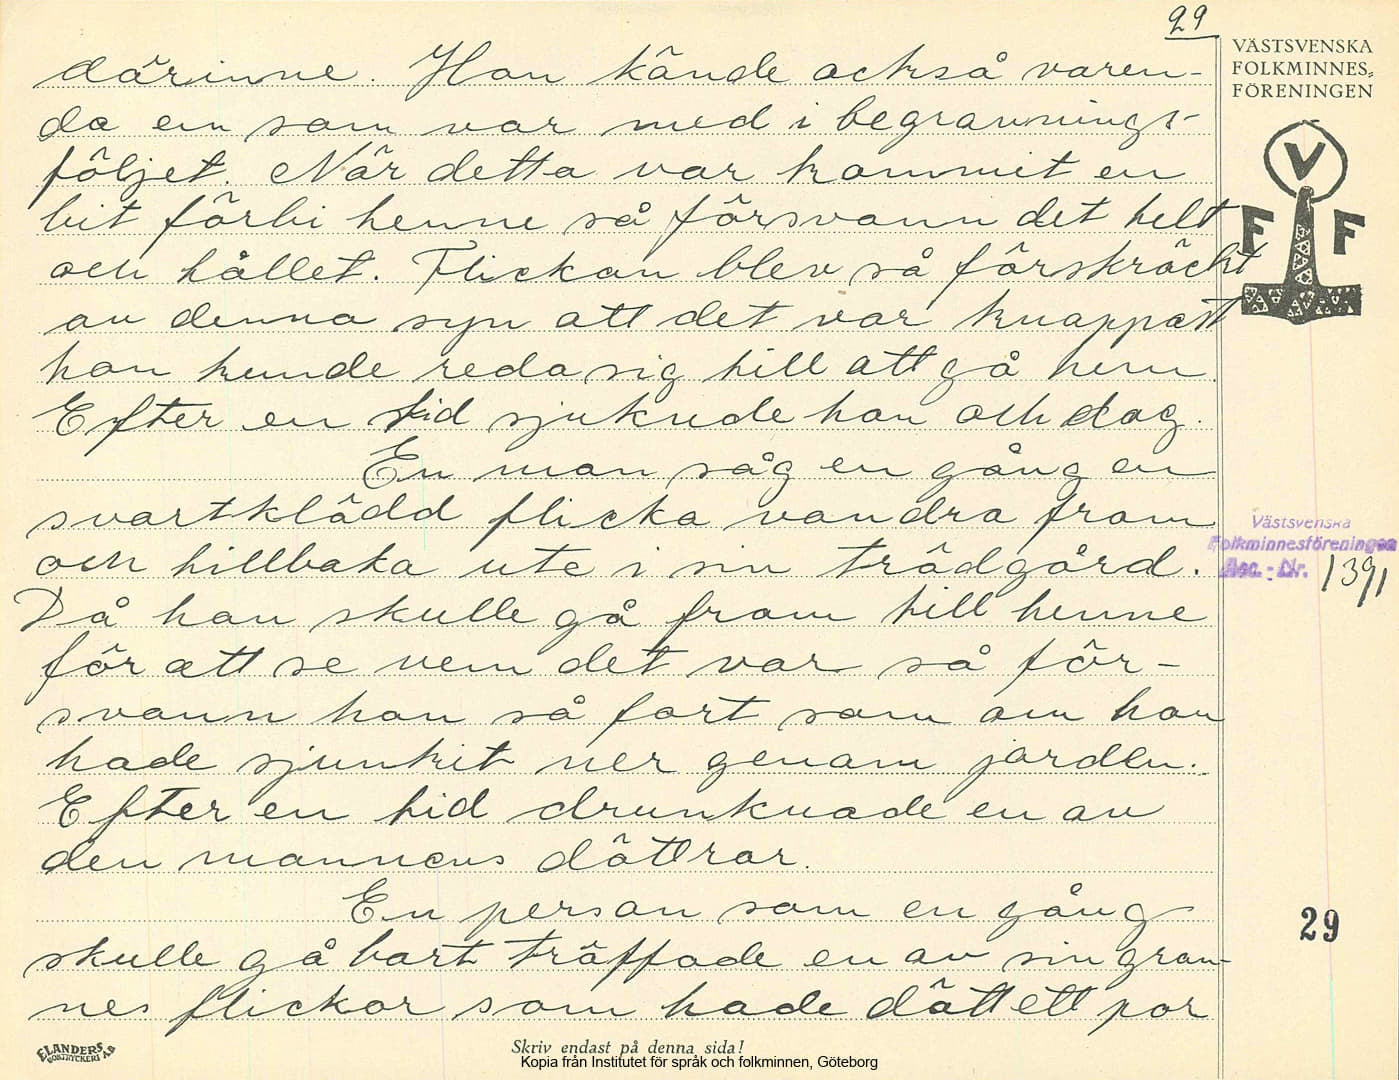 29
VÄSTSVENSKA
FOLKMINNES-
FÖRENINGEN
V
F F
därinne. Hon kände också varen-
da en som var med i begravnings-
följet. När detta var kommit en
bit förbi henne så försvann det helt
och hållet. Flickan blev så förskräckt
av denna syn att det var knappast
hon kunde reda sig till att gå hem.
Efter en tid sjuknade hon och dog.
En man såg en gång en
svartklädd flicka vandra fram
och tillbaka ute i sin trädgård.
Då han skulle gå fram till henne
för att se vem det var så för-
svann hon så fort som om hon
hade sjunkit ner genom jorden.
Efter en tid drunknade en av
den mannens döttrar.
En person som en gång
skulle gå bort träffade en av sin gran-
nes flickor som hade dött ett par
Västsvenska
Folkminnesföreningen
Acc.-Nr. 1391
29
ELANDERS
BOKTRYCKERI A.B
Skriv endast på denna sida!
Kopia från Institutet för språk och folkminnen, Göteborg